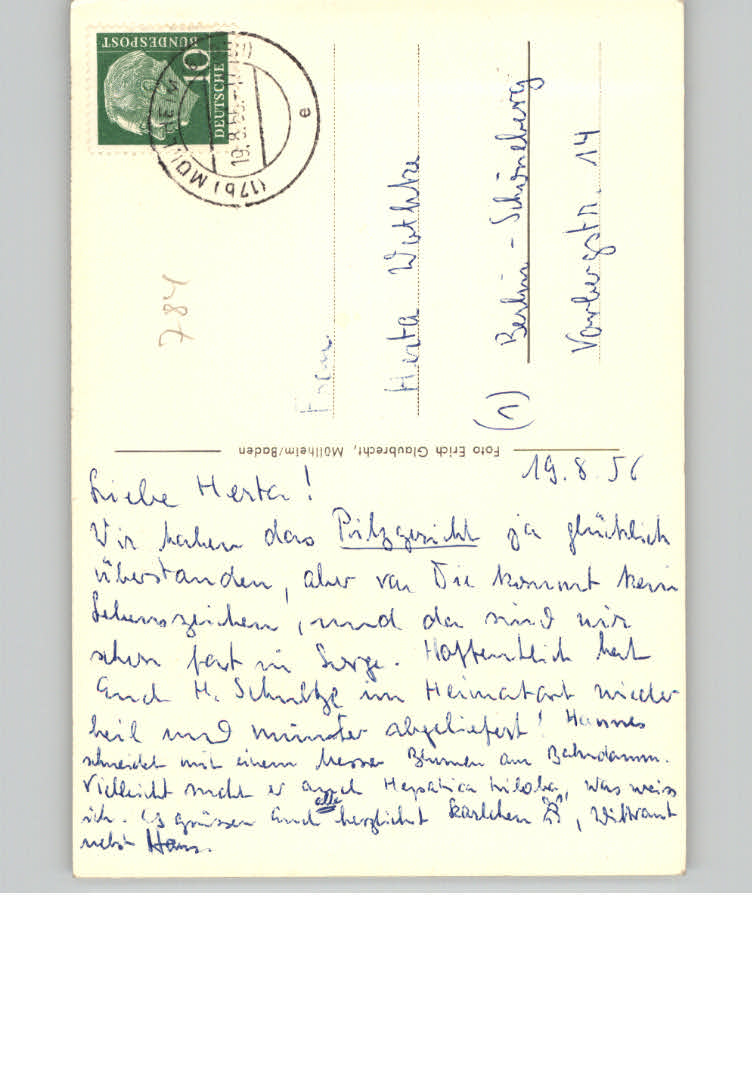 DEUTSCHE
BUNDESPOST
10
(17b) MÜLLHEIM
19.8.56.-17
e
784
Frau
Herta
(1) Berlin - Schöneberg
Vorbergstr. 14
Foto Erich Glaubrecht, Müllheim/Baden
19.8.56
Liebe Herta!
Wir haben das Pilzgericht ja glücklich
überstanden, aber von Dir kommt kein
Lebenszeichen, und da sind wir
schon fast in Sorge. Hoffentlich hat
Euch H. Schultze im Heimatort wieder
heil und munter abgeliefert! Hannes
schneidet mit einem Messer Blumen am Bahndamm.
Vielleicht sucht er auch Hepatica triloba, was weiss
ich. Es grüssen Euch alle herzlichst Karlchen, Wiltraut
nebst Hans.